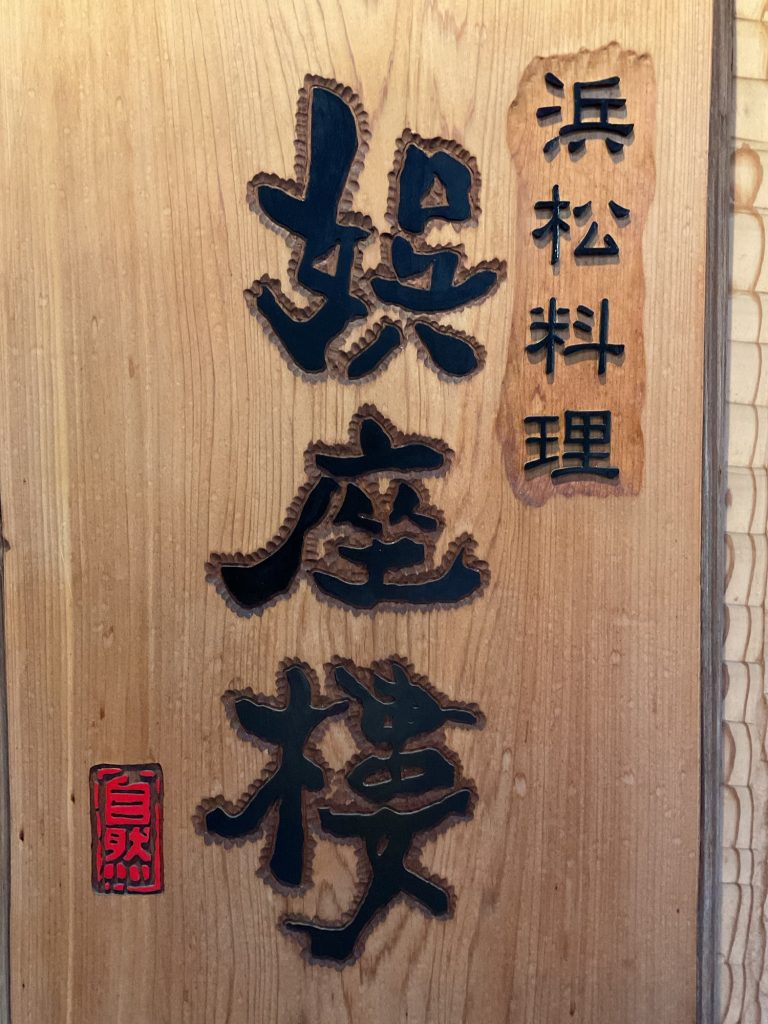 浜松料理
娯座樓
自然